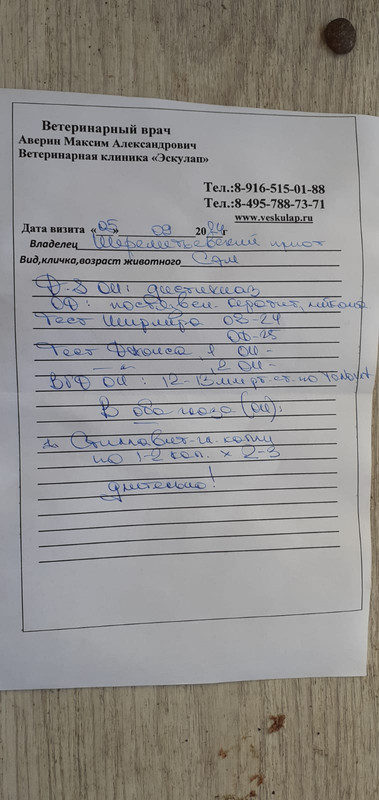 Ветеринарный врач
Аверин Максим Александрович
Ветеринарная клиника «Эскулап»
Тел.:8-916-515-01-88
Тел.:8-495-788-73-71
www.veskulap.ru
Дата визита «05» 09 2024г
Владелец Шереметьевский приют
Вид,кличка,возраст животного Сэм
D-S OU: дистихиаз
OD: поствоспал. кератит,
Тест Ширмера OS-24
OD-25
Тест Джонса 1 OU-
—"— 2 OU-
ВГД OU: 12-13 мм рт. ст. по TonoVet
В оба глаза (OU):
1. Стиллавит-гл. капли
по 1-2 кап. х 2-3
длительно!